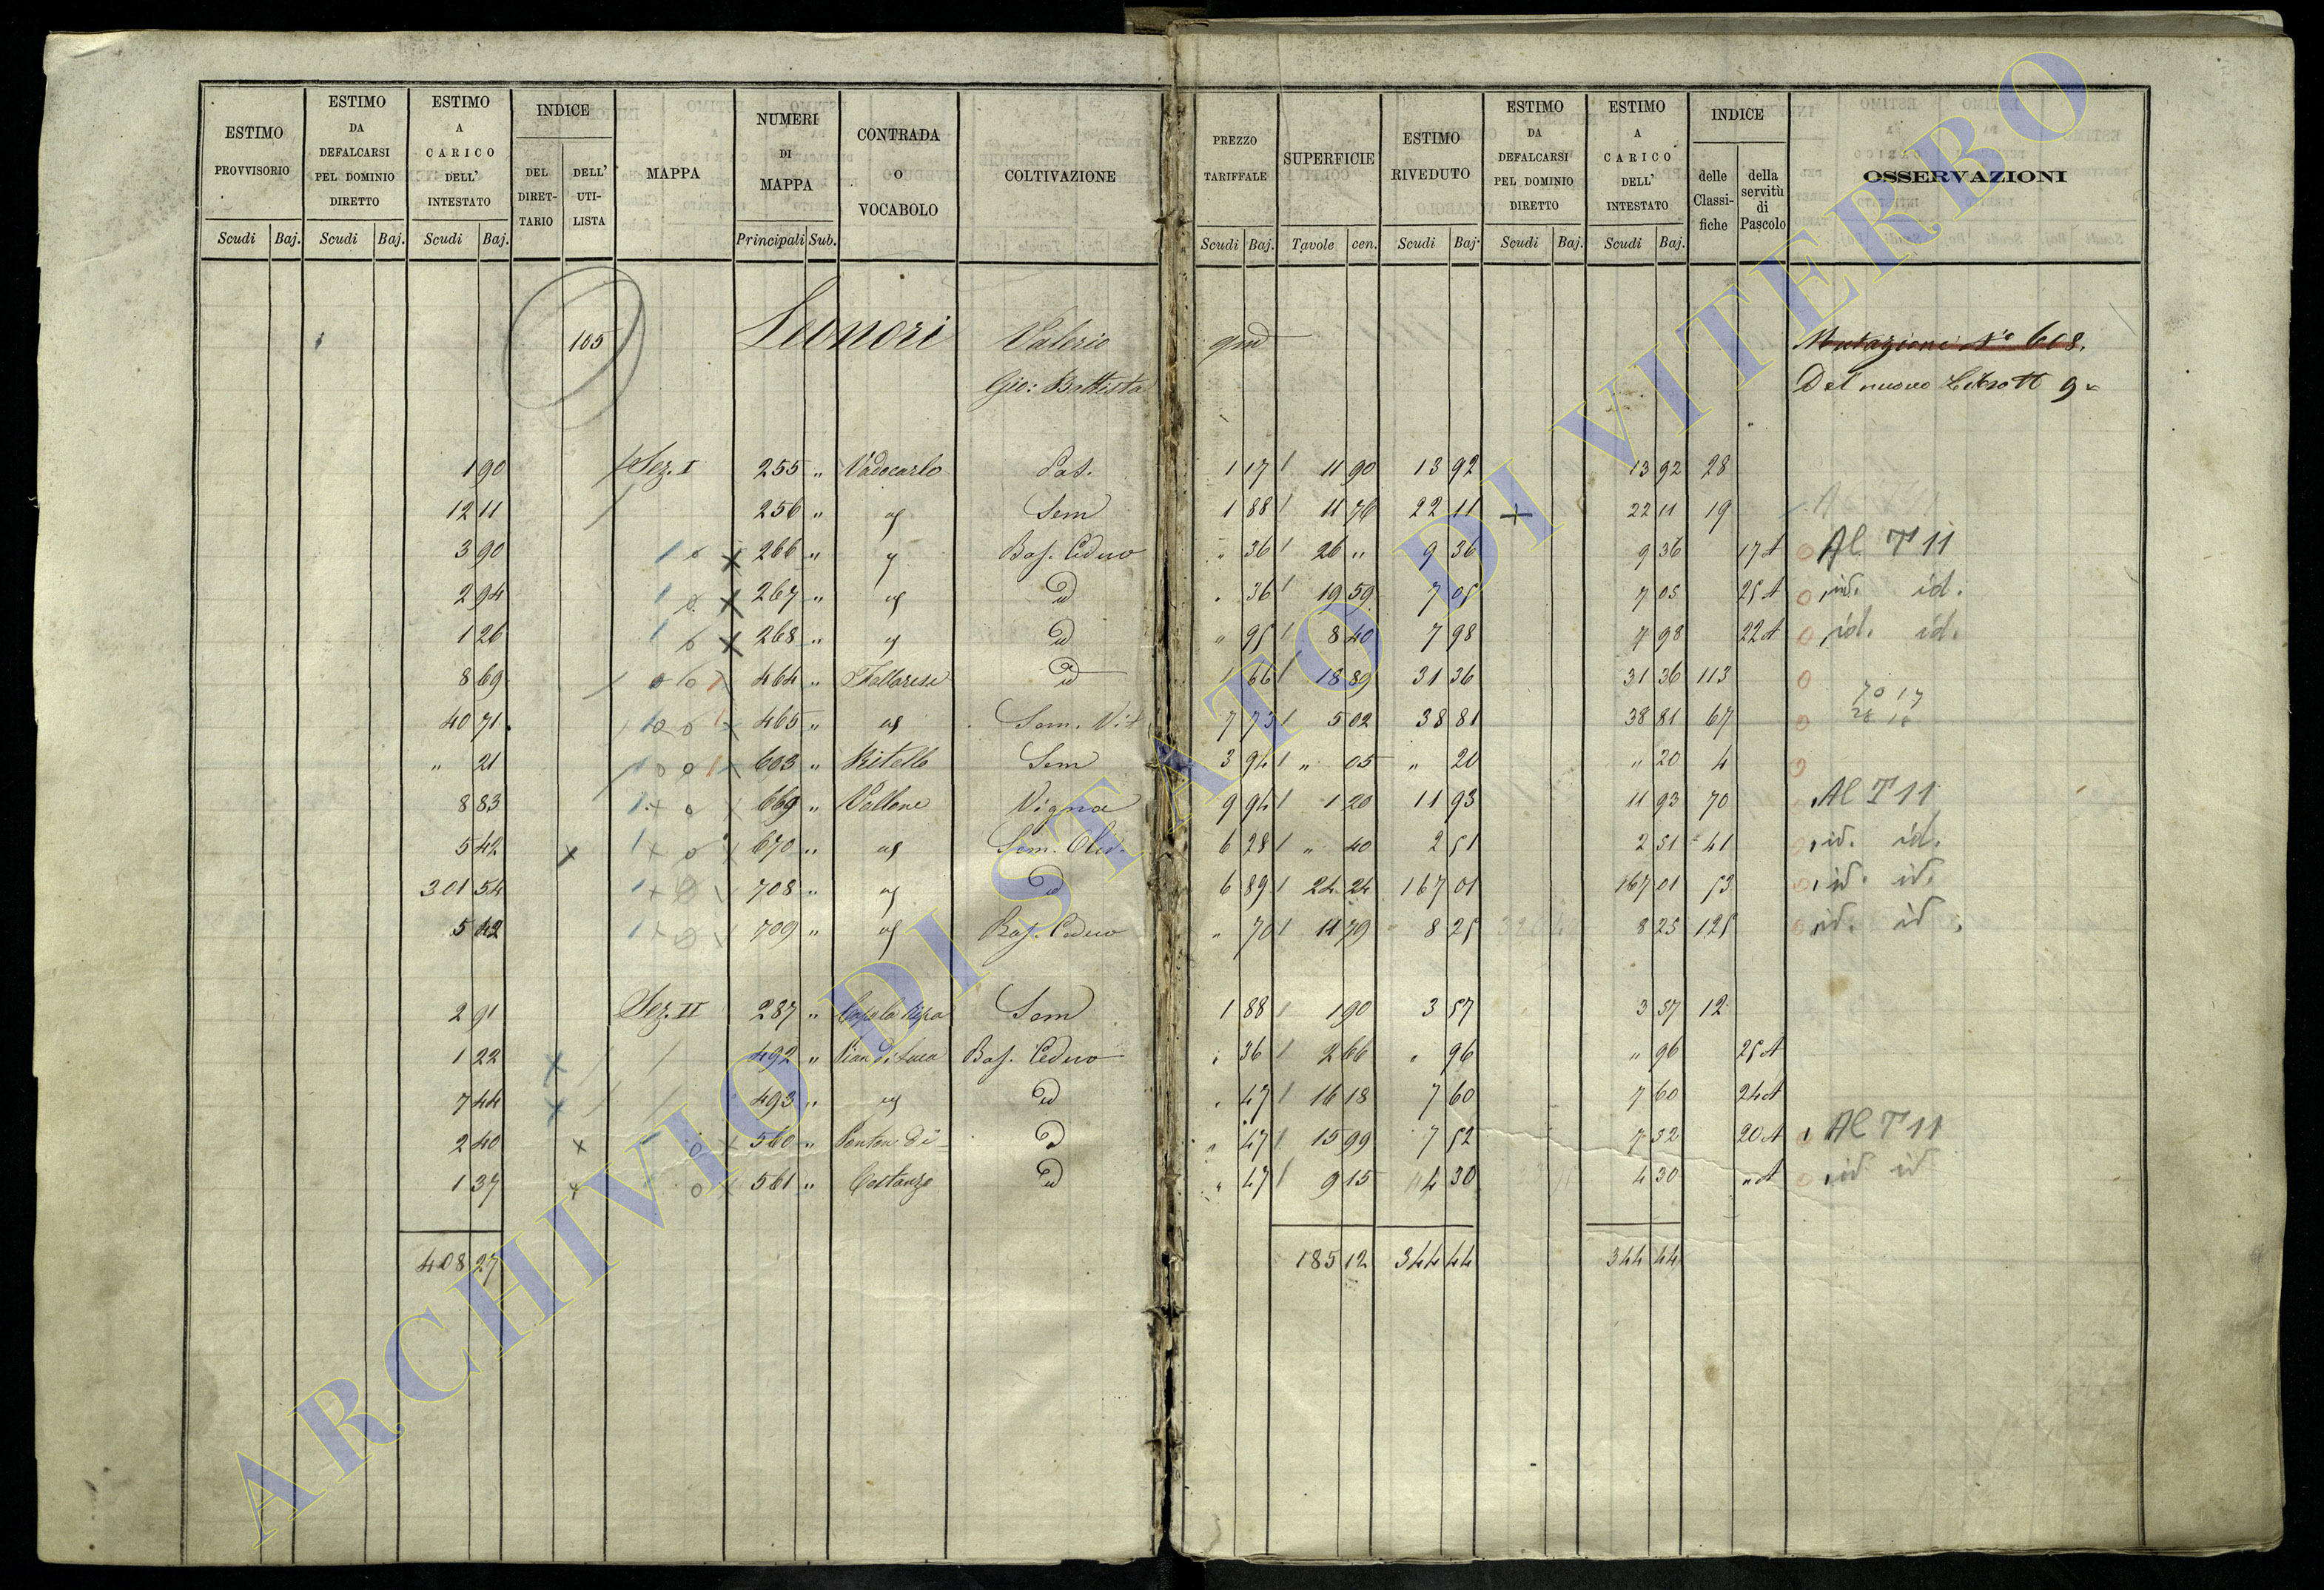 ESTIMO PROVVISORIO Scudi Baj.
ESTIMO DA DEFALCARSI PEL DOMINIO DIRETTO Scudi Baj.
ESTIMO A CARICO DELL' INTESTATO Scudi Baj.
INDICE DEL DIRET- TARIO DELL' UTI- LISTA
MAPPA
NUMERI DI MAPPA Principali Sub.
CONTRADA O VOCABOLO
COLTIVAZIONE
PREZZO TARIFFALE Scudi Baj.
SUPERFICIE Tavole cen.
ESTIMO RIVEDUTO Scudi Baj.
ESTIMO DA DEFALCARSI PEL DOMINIO DIRETTO Scudi Baj.
ESTIMO A CARICO DELL' INTESTATO Scudi Baj.
INDICE delle Classi- fiche della servitù di Pascolo
OSSERVAZIONI
105 Leonori Valerio qm Mutazione N° 608.
Gio: Battista Del nuovo 9
1 90 Sez. I 255 " Vadocarlo Pas. 1 17 11 90 13 92 13 92 28
12 11 256 " Sem 1 88 11 76 22 11 22 11 19
3 90 266 " Bos. Ceduo " 36 26 " 9 36 9 36 17 A Al T 11
2 94 267 " id " 36 19 59 7 05 7 05 25 A id. id.
1 26 268 " id " 95 8 40 7 98 7 98 22 A id. id.
8 69 464 " id 1 66 18 89 31 36 31 36 113
40 71 465 " Sem. Vit 7 73 5 02 38 81 38 81 67
" 21 603 " Sem 3 94 " 05 " 20 " 20 4
8 83 669 " Vallone Vigna 9 94 1 20 11 93 11 93 70 Al T 11
5 42 670 " Sem. Oliv. 6 28 " 40 2 51 2 51 41 id. id.
301 54 708 " id 6 89 24 24 167 01 167 01 53 id. id.
5 42 709 " Bos. Ceduo " 70 11 79 8 25 8 25 125 id. id.
2 91 Sez. II 287 " Sem 1 88 1 90 3 57 3 57 12
1 22 492 " Pian di Luca Bos. Ceduo " 36 2 66 " 96 " 96 25 A
7 44 493 " id " 47 16 18 7 60 7 60 24 A
2 40 560 " di id " 47 15 99 7 52 7 52 20 A Al T 11
1 37 561 " Costanzo id " 47 9 15 4 30 4 30 " A id id
408 27 185 12 344 44 344 44
ARCHIVIO DI STATO DI VITERBO